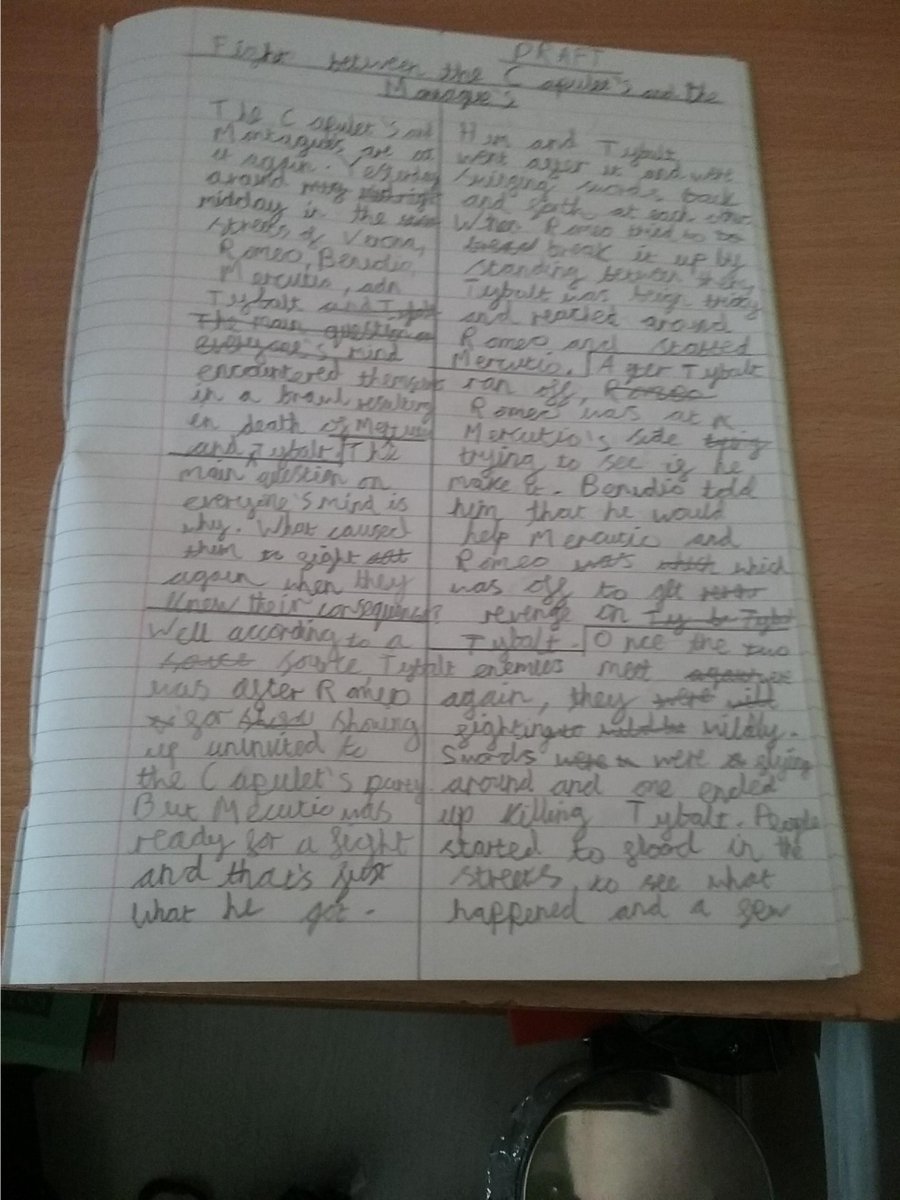 DRAFT
Fight between the Capulet's and the
Montague's
The Capulet's and
Montagues are at
it again. Yesterday
around
midday in the
streets of Verona,
Romeo, Benidio,
Mercutio, adn
Tybalt and Tybalt
The main question on
everyone's mind
encountered themselves
in a brawl resulting
in death of Mercutio
and Tybalt. The
main question on
everyone's mind is
why. What caused
them to fight
again when they
know their consequences?
Well according to a
source Tybalt
was after Romeo
for showing
up uninvited to
the Capulet's party.
But Mecutio was
ready for a fight
and that's just
what he got.
Him and Tybalt
went after it and were
swinging swords back
and forth at each other.
When Romeo tried to
break it up by
standing between them,
Tybalt was being tricky
and reached around
Romeo and stabbed
Mercutio. After Tybalt
ran off, Romeo
Romeo was at
Mercutio's side trying
trying to see if he
make it. Benidio told
him that he would
help Mercutio and
Romeo was which which
was off to get
revenge on
Tybalt. Once the two
enemies meet
again, they were
fighting wildly.
Swords were were flying
around and one ended
up killing Tybalt. People
started to flood in the
streets, to see what
happened and a few